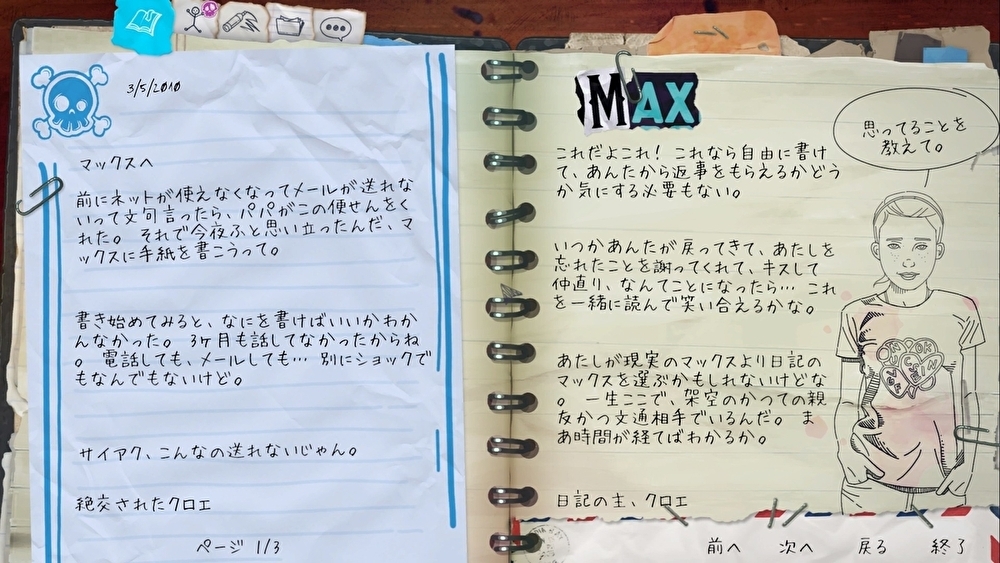 3/5/2010
マックスへ
前にネットが使えなくなってメールが送れな
いって文句言ったら、パパがこの便せんをく
れた。 それで今夜ふと思い立ったんだ、マ
ックスに手紙を書こうって。
書き始めてみると、なにを書けばいいかわか
んなかった。 3ヶ月も話してなかったからね
。 電話しても、メールしても… 別にショックで
もなんでもないけど。
サイアク、こんなの送れないじゃん。
絶交されたクロエ
ページ 1/3
MAX
思ってることを
教えて。
これだよこれ! これなら自由に書け
て、あんたから返事をもらえるかどう
か気にする必要もない。
いつかあんたが戻ってきて、あたしを
忘れたことを謝ってくれて、キスして
仲直り、なんてことになったら… これ
を一緒に読んで笑い合えるかな。
あたしが現実のマックスより日記の
マックスを選ぶかもしれないけどな
。 一生ここで、架空のかつての親
友かつ文通相手でいるんだ。 ま
あ時間が経てばわかるか。
日記の主、クロエ
前へ 次へ 戻る 終了